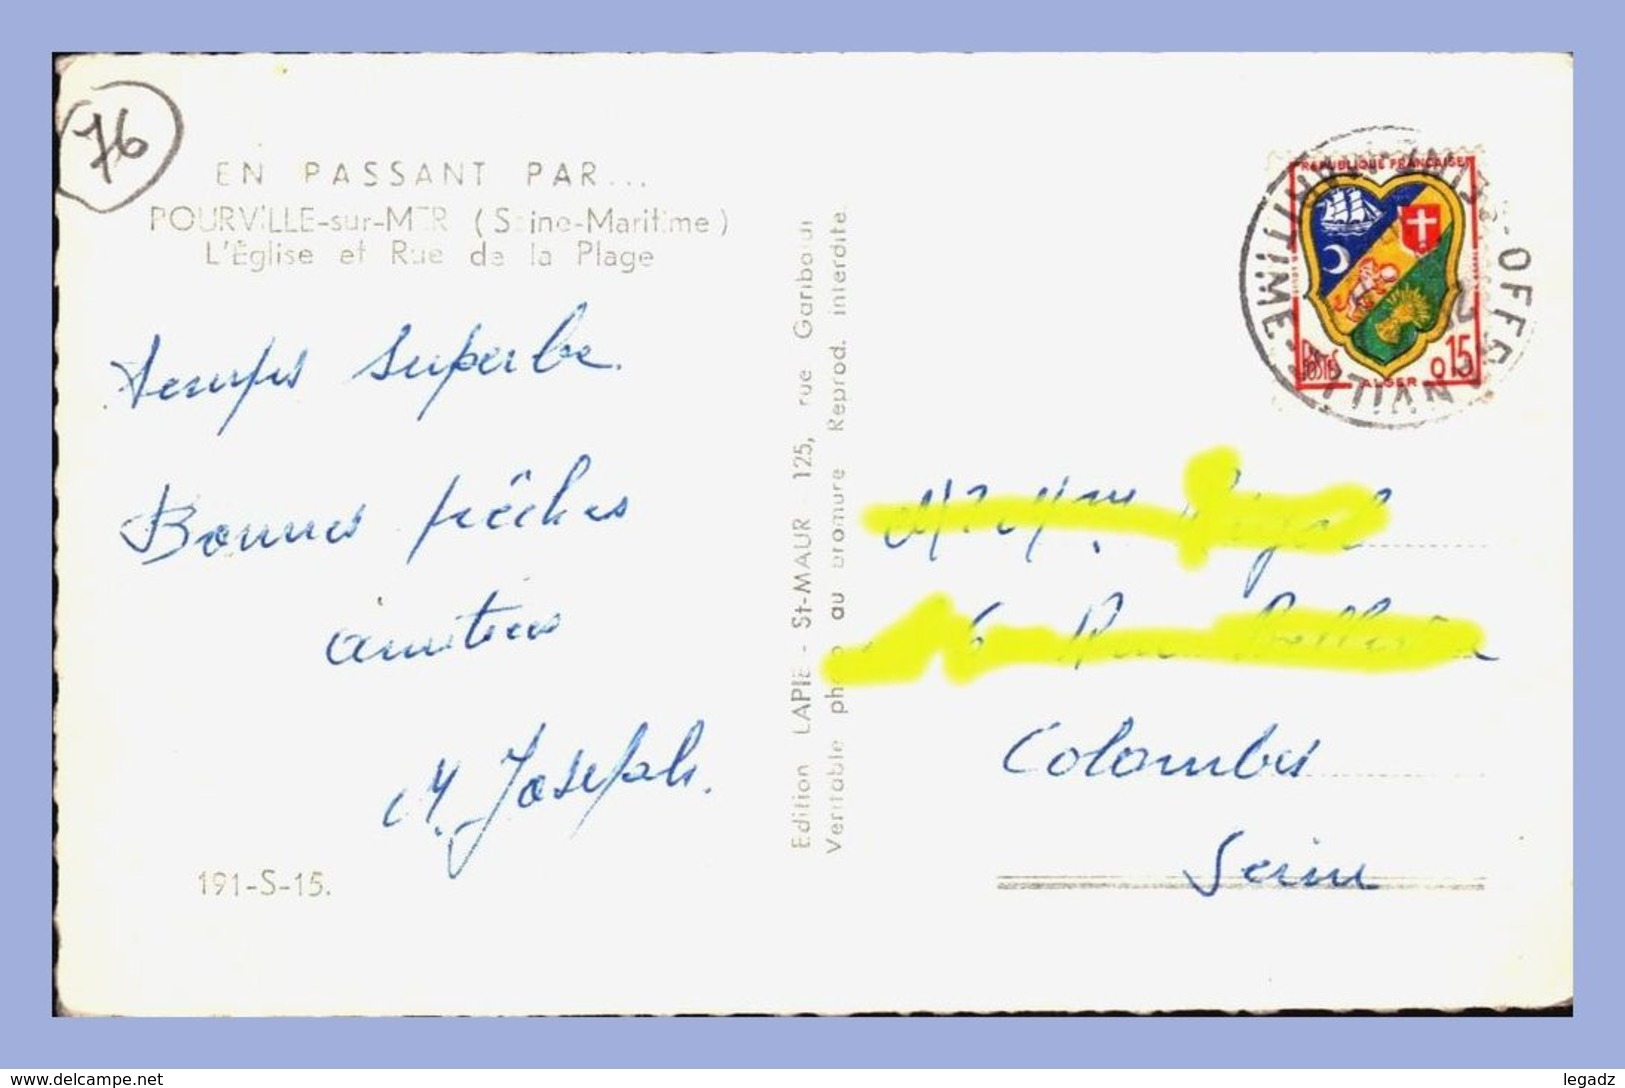 76
EN PASSANT PAR...
POURVILLE-sur-MER (Seine-Maritime)
L'Église et Rue de la Plage
Temps superbe.
Bonnes pêches
amitiés
M. Joseph.
191-S-15.
Edition LAPIE - St-MAUR - 125, rue Garibaldi
Veritable photo au bromure Reprod. interdite.
REPUBLIQUE FRANÇAISE
POSTES
0,15
ALGER
OFFRANVILLE
MARITIME
6 Rue
Colombes
Seine
www.delcampe.net
legadz